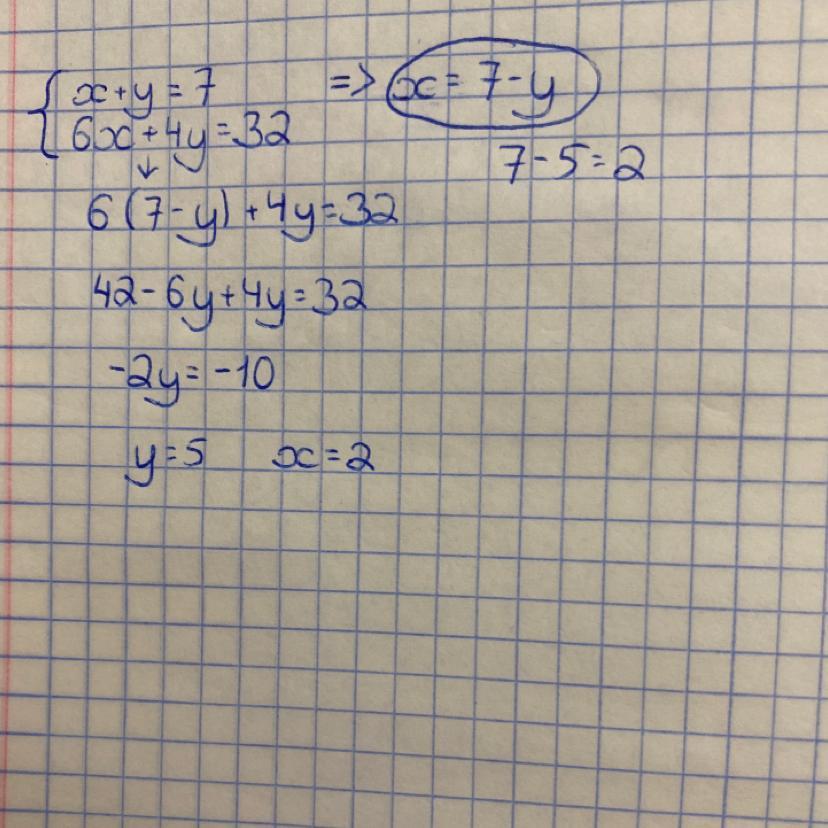 { x+y=7 => x=7-y
6x+4y=32
7-5=2
↓
6(7-y)+4y=32
42-6y+4y=32
-2y=-10
y=5 x=2